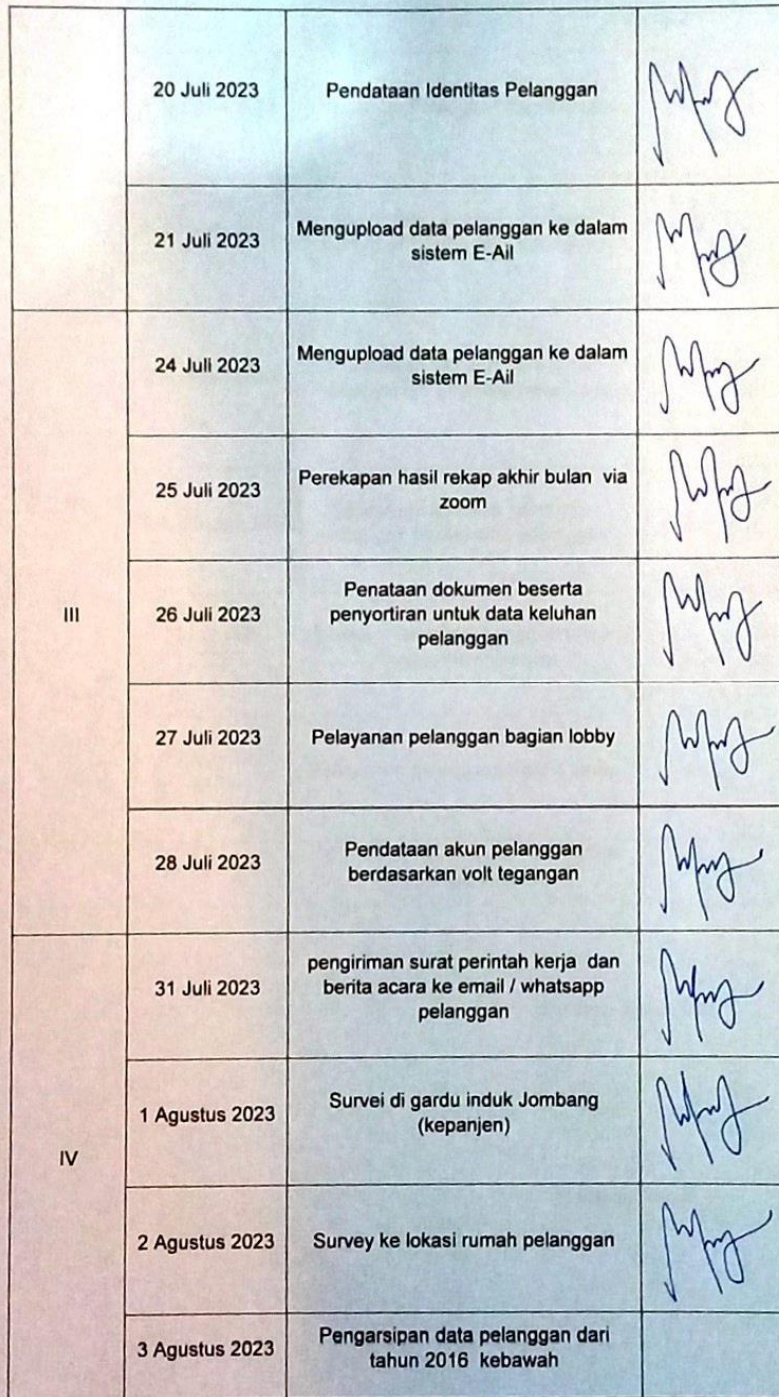 20 Juli 2023
Pendataan Identitas Pelanggan
21 Juli 2023
Mengupload data pelanggan ke dalam
sistem E-Ail
III
24 Juli 2023
Mengupload data pelanggan ke dalam
sistem E-Ail
25 Juli 2023
Perekapan hasil rekap akhir bulan via
zoom
26 Juli 2023
Penataan dokumen beserta
penyortiran untuk data keluhan
pelanggan
27 Juli 2023
Pelayanan pelanggan bagian lobby
28 Juli 2023
Pendataan akun pelanggan
berdasarkan volt tegangan
IV
31 Juli 2023
pengiriman surat perintah kerja dan
berita acara ke email / whatsapp
pelanggan
1 Agustus 2023
Survei di gardu induk Jombang
(kepanjen)
2 Agustus 2023
Survey ke lokasi rumah pelanggan
3 Agustus 2023
Pengarsipan data pelanggan dari
tahun 2016 kebawah